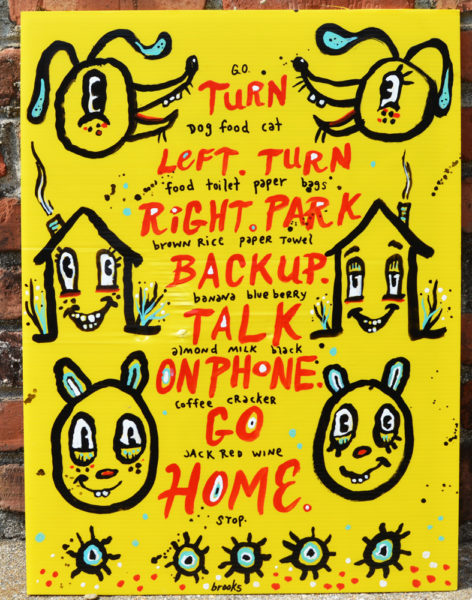 GO.
TURN
DOG FOOD CAT
LEFT. TURN
food toilet paper bags
RIGHT. PARK
BROWN RICE PAPER TOWEL
BACKUP.
BANANA BLUEBERRY
TALK
almond MILK black
ON PHONE.
COFFEE CRACKER
GO
JACK RED WINE
HOME.
STOP.
brooks